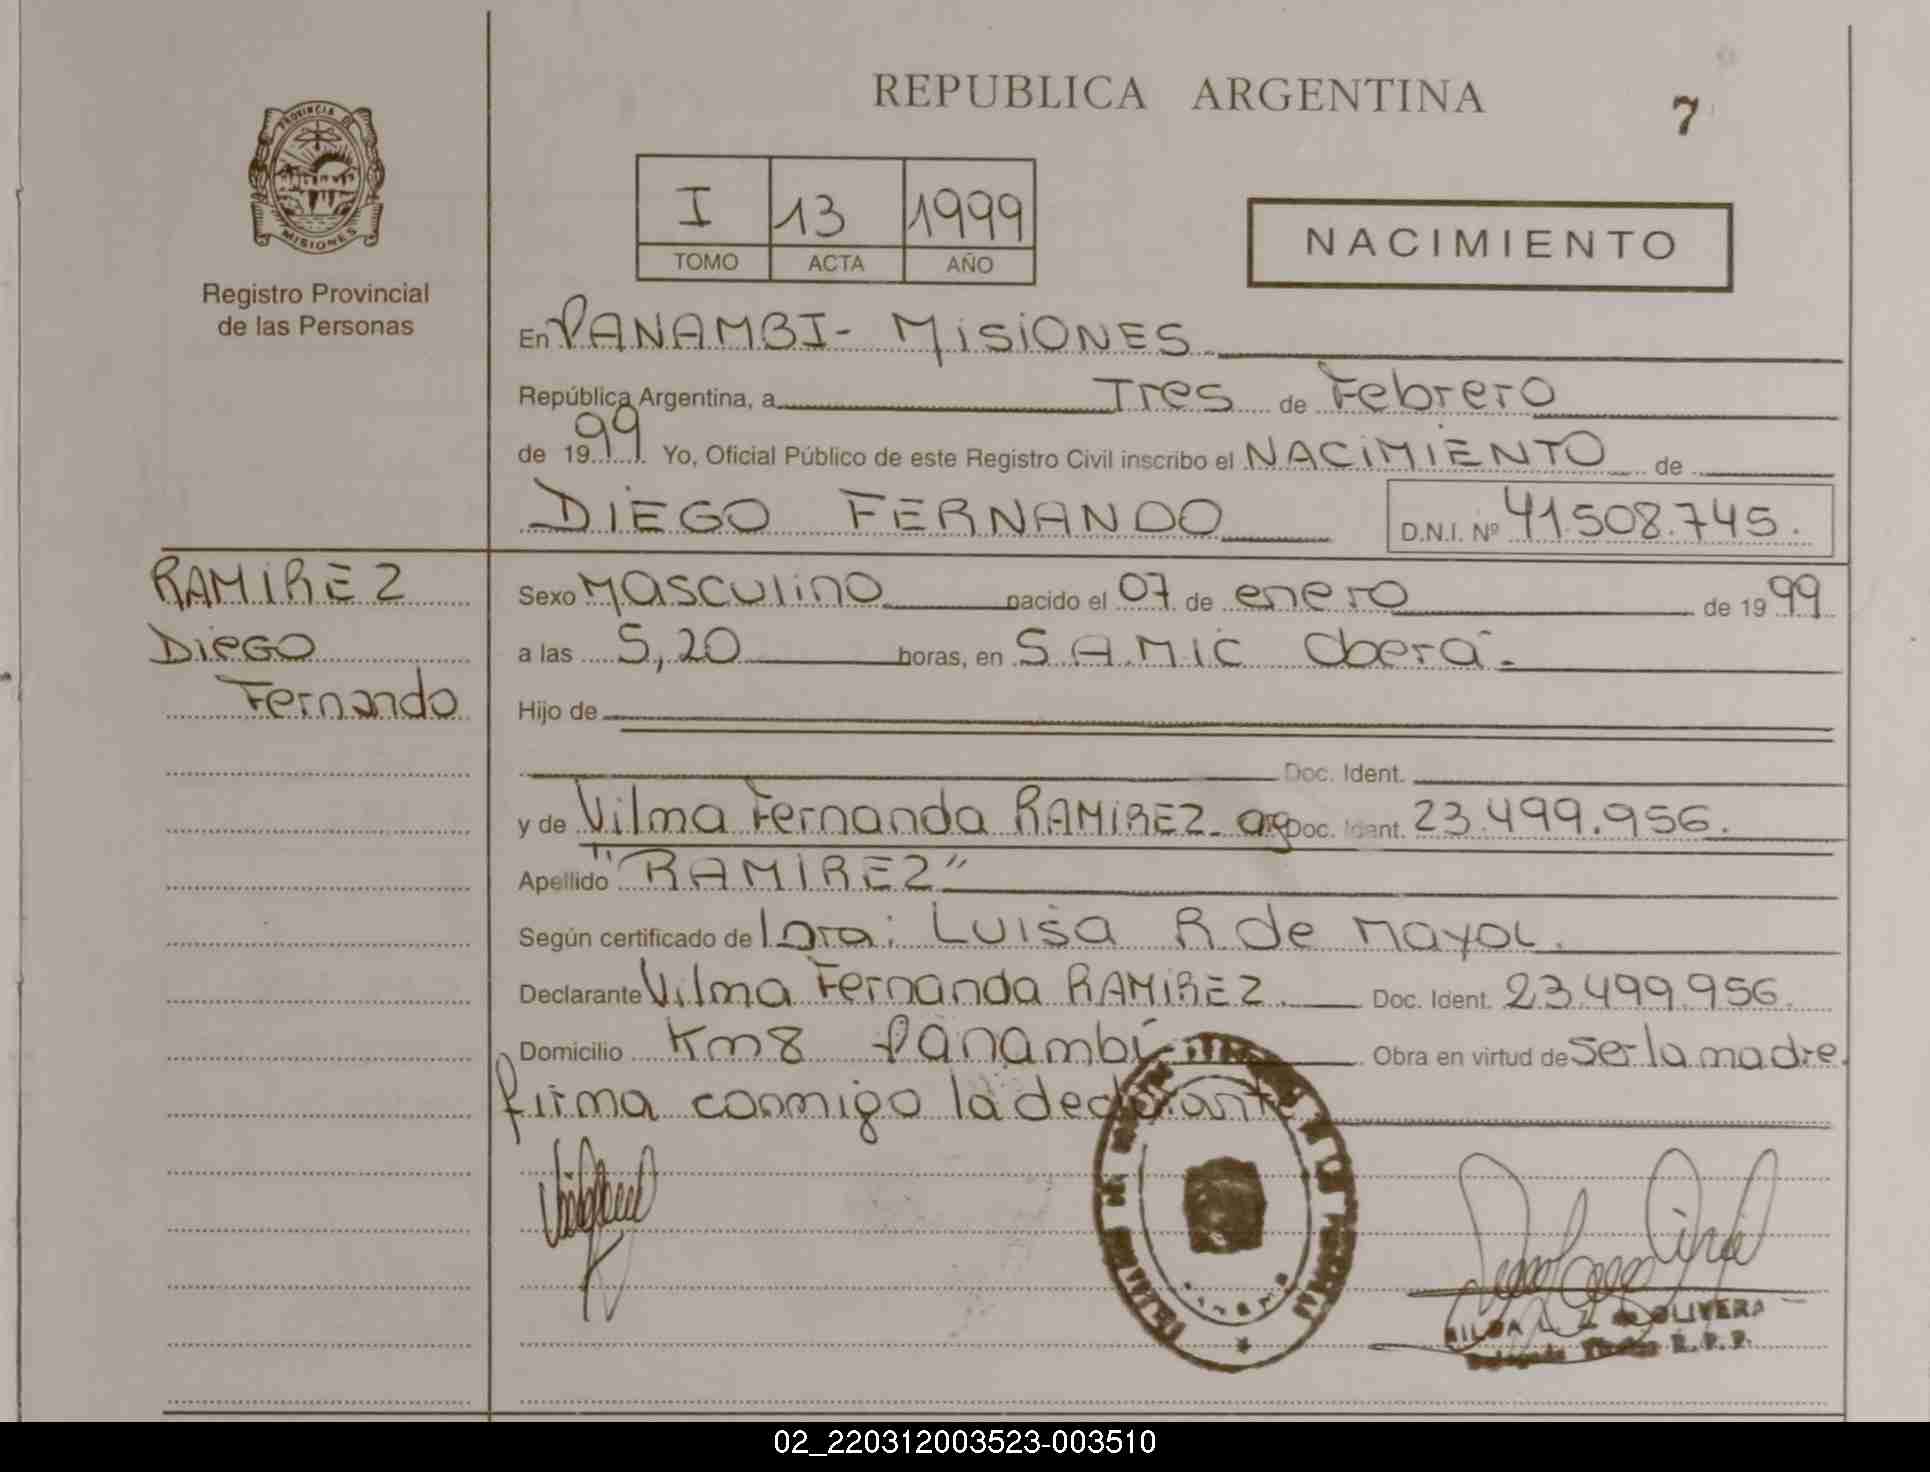 REPUBLICA ARGENTINA
7
PROVINCIA DE
MISIONES
Registro Provincial
de las Personas
I 13 1999
TOMO ACTA AÑO
NACIMIENTO
En PANAMBI- MISIONES
República Argentina, a Tres de Febrero
de 1999 Yo, Oficial Público de este Registro Civil inscribo el NACIMIENTO de
DIEGO FERNANDO D.N.I. Nº 41.508.745.
RAMIREZ
Diego
Fernando
Sexo Masculino nacido el 07 de enero de 1999
a las 5,20 horas, en SAMIC Oberá-
Hijo de
Doc. Ident.
y de Vilma Fernanda RAMIREZ- arg Doc. Ident. 23.499.956.
Apellido "RAMIREZ"
Según certificado de Dra: Luisa R de Mayol.
Declarante Vilma Fernanda RAMIREZ. Doc. Ident. 23.499.956.
Domicilio Km8 Panambí- Obra en virtud de Ser la madre.
firma conmigo la declarante
de OLIVERA
R.P.P.
02_220312003523-003510